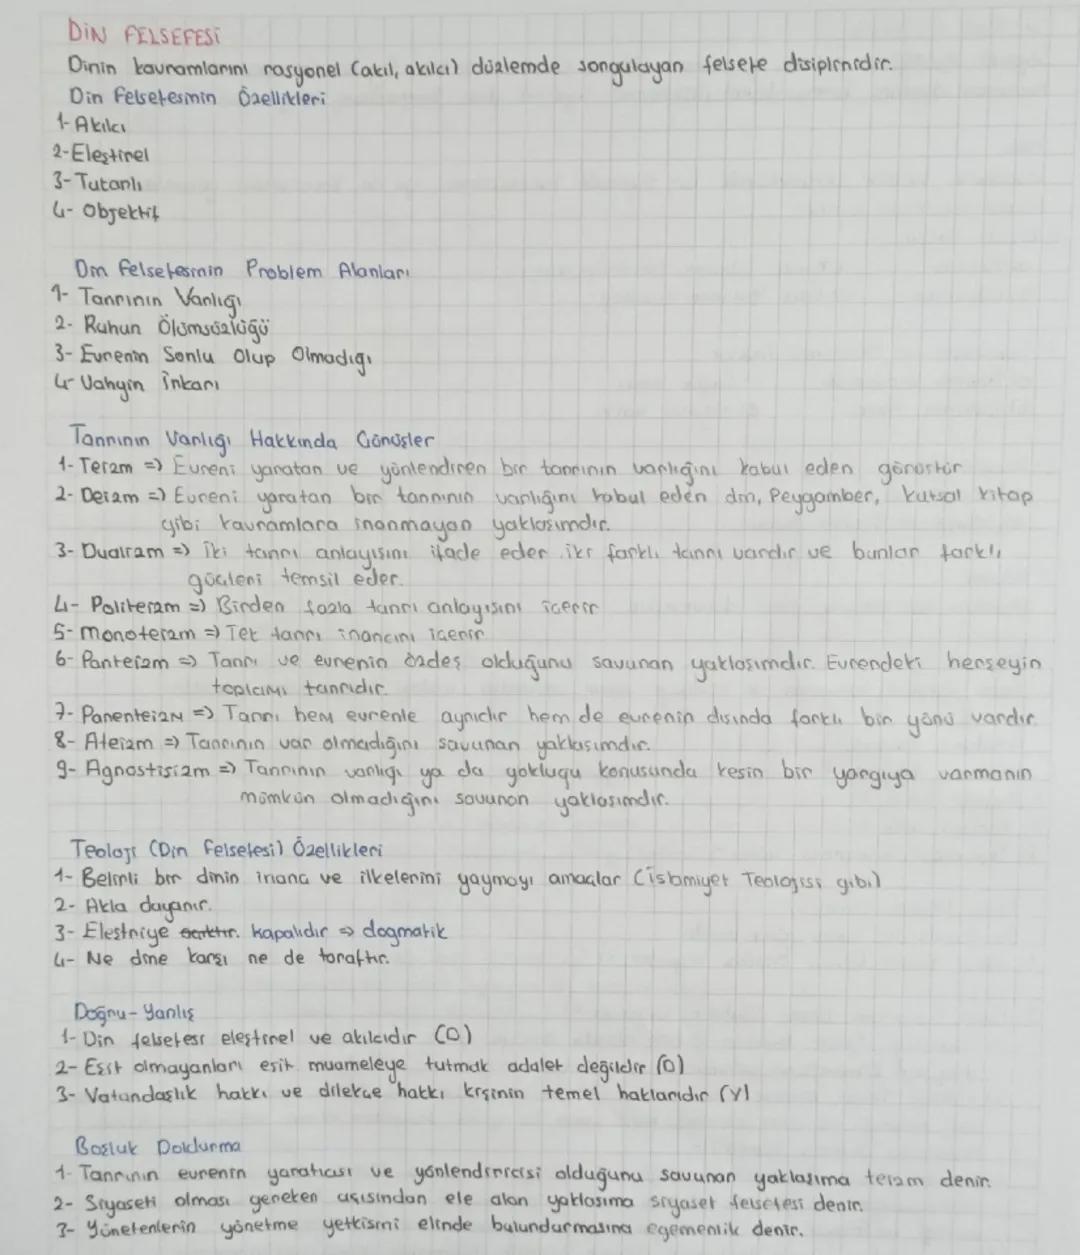 DİN FELSEFESİ
Dinin kavramlarını rasyonel (akıl, akılcı) düzlemde sorgulayan felsefe disiplinidir.
Din Felsefesinin Özellikleri
1- Akılcı
2- Eleştirel
3- Tutarlı
4- Objektif
Din Felsefesinin Problem Alanları
1- Tanrının Varlığı
2- Ruhun Ölümsüzlüğü
3- Evrenin Sonlu Olup Olmadığı
4- Vahyin İnkarı
Tanrının Varlığı Hakkında Görüşler
1- Teizm => Evreni yaratan ve yönlendiren bir tanrının varlığını kabul eden görüştür
2- Deizm => Evreni yaratan bir tanrının varlığını kabul eden din, Peygamber, kutsal kitap
gibi kavramlara inanmayan yaklaşımdır.
3- Dualizm => İki tanrı anlayışını ifade eder. iki farklı tanrı vardır ve bunlar farklı
güçleri temsil eder.
4- Politeizm => Birden fazla tanrı anlayışını içerir
5- Monoteizm => Tek tanrı inancını içerir
6- Panteizm => Tanrı ve evrenin özdeş olduğunu savunan yaklaşımdır. Evrendeki herşeyin
toplamı tanrıdır.
7- Panenteizm => Tanrı hem evrenle aynıdır hem de evrenin dışında farklı bir yönü vardır.
8- Ateizm => Tanrının var olmadığını savunan yaklaşımdır.
9- Agnostisizm => Tanrının varlığı ya da yokluğu konusunda kesin bir yargıya varmanın
mümkün olmadığını savunan yaklaşımdır.
Teoloji (Din Felsefesi) Özellikleri
1- Belirli bir dinin inanç ve ilkelerini yaymayı amaçlar (İslamiyet Teolojisi gibi)
2- Akla dayanır.
3- Eleştriye kapalıdır => dogmatik
4- Ne dine karşı ne de taraftır.
Doğru - Yanlış
1- Din felsefesi eleştirel ve akılcıdır (D)
2- Eşit olmayanları eşit muameleye tutmak adalet değildir (D)
3- Vatandaşlık hakkı ve dilekçe hakkı kişinin temel haklarıdır (Y)
Boşluk Doldurma
1- Tanrının evrenin yaratıcısı ve yönlendiricisi olduğunu savunan yaklaşıma teizm denir.
2- Siyaseti olması gereken açısından ele alan yaklaşıma siyaset felsefesi denir.
3- Yönetenlerin yönetme yetkisini elinde bulundurmasına egemenlik denir.